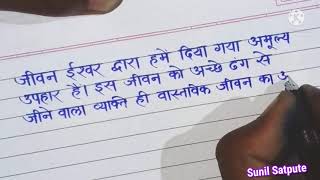 जीवन ईश्वर द्वारा हमें दिया गया अमूल्य
उपहार है। इस जीवन को अच्छे ढंग से
जीने वाला व्यक्ति ही वास्तविक जीवन का
Sunil Satpute